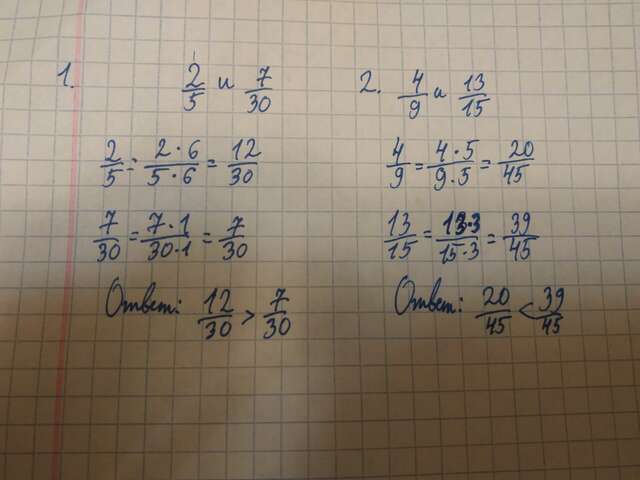 1. 2/5 и 7/30
2/5 = 2·6/5·6 = 12/30
7/30 = 7·1/30·1 = 7/30
Ответ: 12/30 > 7/30
2. 4/9 и 13/15
4/9 = 4·5/9·5 = 20/45
13/15 = 13·3/15·3 = 39/45
Ответ: 20/45 < 39/45